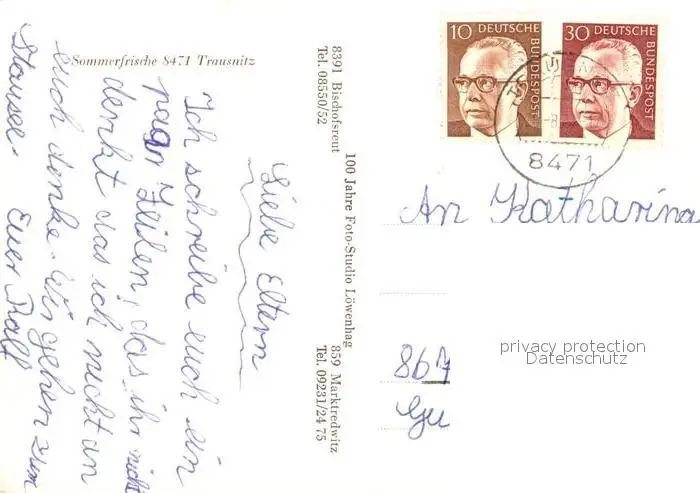 Sommerfrische 8471 Trausnitz
Liebe Eltern
Ich schreibe euch ein
paar Zeilen, das ihr nicht
denkt das ich nicht an
euch denke. Wir gehen zum
Stausee. Euer Ralf
8391 Bischofsreut
Tel. 08550/52
100 Jahre Foto-Studio Löwenhag
859 Marktredwitz
Tel. 09231/24 75
10 DEUTSCHE BUNDESPOST
30 DEUTSCHE BUNDESPOST
8471
An Katharina
867
privacy protection
Datenschutz